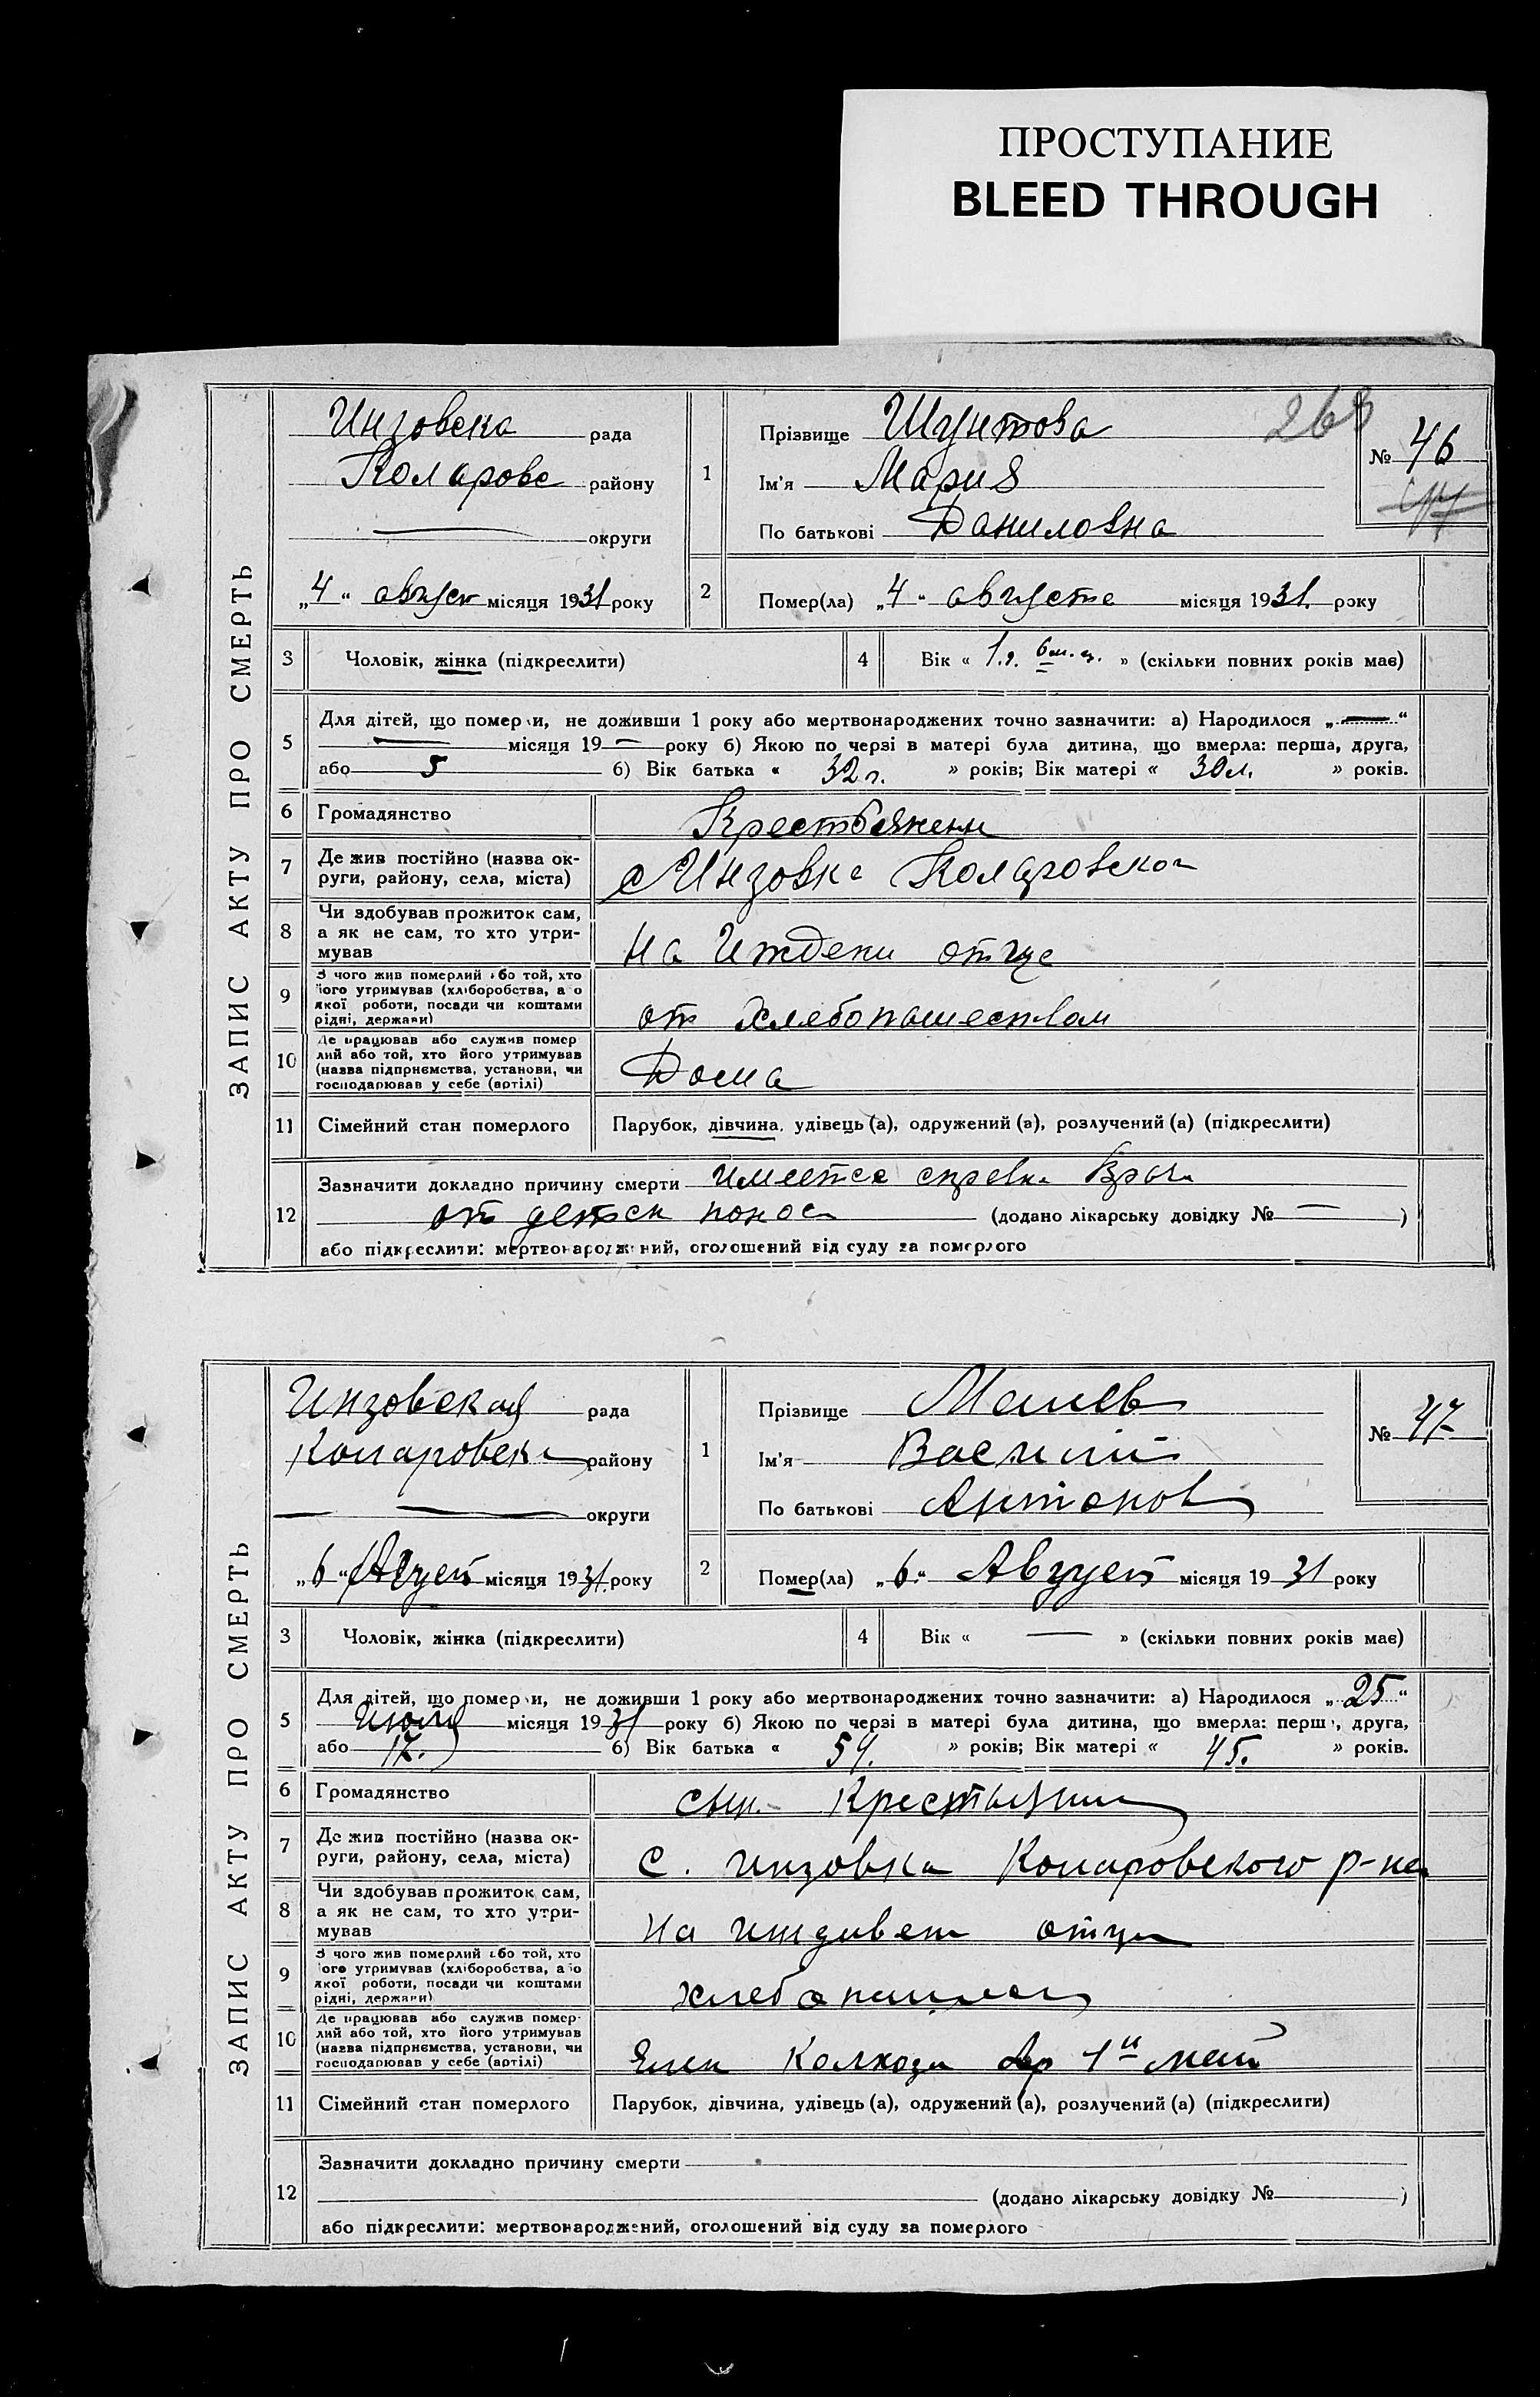 ПРОСТУПАНИЕ
BLEED THROUGH
ЗАПИС АКТУ ПРО СМЕРТЬ
Инзовска рада
Коларовс району
— округи
„4“ август місяця 1931 року
1
Прізвище Шунтова
Ім'я Мария
По батькові Даниловна
268
№ 46
2 Помер(ла) „4“ августа місяця 1931. року
3 Чоловік, жінка (підкреслити)
4 Вік « 1 г. 6 м-ц. » (скільки повних років має)
5 Для дітей, що померли, не доживши 1 року або мертвонароджених точно зазначити: а) Народилося „—“
— місяця 19— року б) Якою по черзі в матері була дитина, що вмерла: перша, друга,
або 5 б) Вік батька « 32 г. » років; Вік матері « 30 л. » років.
6 Громадянство Крестьянени
7 Де жив постійно (назва ок-
руги, району, села, міста) с Инзовка Коларовског
8 Чи здобував прожиток сам,
а як не сам, то хто утри-
мував На Иждени отца
9 З чого жив померлий або той, хто
його утримував (хліборобства, або
якої роботи, посади чи коштами
рідні, держави) от хлебопашеством
10 Де працював або служив помер
лий або той, хто його утримував
(назва підприємства, установи, чи
господарював у себе (артілі) Дома
11 Сімейний стан померлого Парубок, дівчина, удівець (а), одружений (а), розлучений (а) (підкреслити)
12 Зазначити докладно причину смерти имеется справка Врача
от детск понос (додано лікарську довідку № —)
або підкреслити: мертвонароджений, оголошений від суду за померлого
ЗАПИС АКТУ ПРО СМЕРТЬ
Инзовская рада
Коларовск району
— округи
„6“ Август місяця 1931. року
1
Прізвище
Ім'я Василий
По батькові Антонов
№ 47
2 Помер(ла) „6.“ Август місяця 1931 року
3 Чоловік, жінка (підкреслити)
4 Вік « — » (скільки повних років має)
5 Для дітей, що померли, не доживши 1 року або мертвонароджених точно зазначити: а) Народилося „25“
Июля місяця 1931 року б) Якою по черзі в матері була дитина, що вмерла: перша, друга,
або 12. б) Вік батька « 54. » років; Вік матері « 45. » років.
6 Громадянство сын. Крестьянин
7 Де жив постійно (назва ок-
руги, району, села, міста) с. Инзовка Коларовского р-на
8 Чи здобував прожиток сам,
а як не сам, то хто утри-
мував На иждивен отца
9 З чого жив померлий або той, хто
його утримував (хліборобства, або
якої роботи, посади чи коштами
рідні, держави)
10 Де працював або служив помер-
лий або той, хто його утримував
(назва підприємства, установи, чи
господарював у себе (артілі) Член Колхоза 1й май
11 Сімейний стан померлого Парубок, дівчина, удівець (а), одружений (а), розлучений (а) (підкреслити)
12 Зазначити докладно причину смерти
(додано лікарську довідку № )
або підкреслити: мертвонароджений, оголошений від суду за померлого